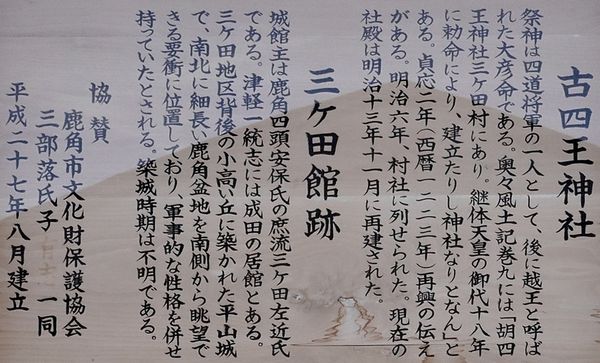 古四王神社
祭神は四道将軍の一人として、後に越王と呼ば
れた大彦命である。奥々風土記巻九には「胡四
王神社三ケ田村にあり。継体天皇の御代十八年
に勅命により、建立たりし神社なりとなん」と
ある。貞応二年(西暦一二二三年)再興の伝え
がある。明治六年、村社に列せられた。現在の
社殿は明治十三年十一月に再建された。
三ケ田館跡
城館主は鹿角四頭安保氏の庶流三ケ田左近氏
である。津軽一統志には成田の居館とある。
三ケ田地区背後の小高い丘に築かれた平山城
で、南北に細長い鹿角盆地を南側から眺望で
きる要衝に位置しており、軍事的な性格を併せ
持っていたとされる。築城時期は不明である。
協賛
鹿角市文化財保護協会
三部落氏子
一同
平成二十七年八月建立